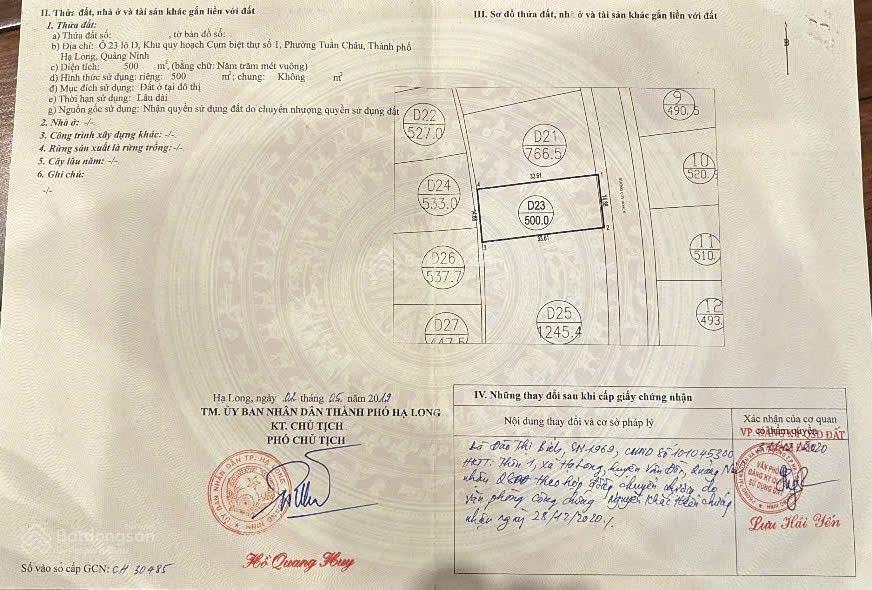 II. Thửa đất, nhà ở và tài sản khác gắn liền với đất
1. Thửa đất:
a) Thửa đất số: , tờ bản đồ số:
b) Địa chỉ: Ô 23 lô D, Khu quy hoạch Cụm biệt thự số 1, Phường Tuần Châu, Thành phố
Hạ Long, Quảng Ninh
c) Diện tích: 500 m², (bằng chữ: Năm trăm mét vuông)
d) Hình thức sử dụng: riêng: 500 m²; chung: Không m²
đ) Mục đích sử dụng: Đất ở tại đô thị
e) Thời hạn sử dụng: Lâu dài
g) Nguồn gốc sử dụng: Nhận quyền sử dụng đất do chuyển nhượng quyền sử dụng đất
2. Nhà ở: -/-
3. Công trình xây dựng khác: -/-
4. Rừng sản xuất là rừng trồng: -/-
5. Cây lâu năm: -/-
6. Ghi chú:
-/-
III. Sơ đồ thửa đất, nhà ở và tài sản khác gắn liền với đất
B
D22
527.0
D21
766.5
9
490.5
D24
533.0
4
32.91
1
D23
500.0
10
520.
3
33.61
2
D26
537.7
11
510.
D27
447.5
D25
1245.4
12
493.
Hạ Long, ngày 02 tháng 05 năm 2019
TM. ỦY BAN NHÂN DÂN THÀNH PHỐ HẠ LONG
KT. CHỦ TỊCH
PHÓ CHỦ TỊCH
Hồ Quang Huy
Số vào sổ cấp GCN: CH 30485
IV. Những thay đổi sau khi cấp giấy chứng nhận
Nội dung thay đổi và cơ sở pháp lý
Xác nhận của cơ quan
có thẩm quyền
VP. ĐĂNG KÝ QSD ĐẤT
Bà Đào Thị Biển, SN 1969, CMND số 101045300
HKTT: Thôn 1, xã Hạ Long, huyện Vân Đồn, Quảng Ninh
nhận QSDĐ theo hợp đồng chuyển nhượng do
Văn phòng công chứng Nguyễn Khắc chứng
nhận ngày 28/12/2020./.
VĂN PHÒNG
ĐĂNG KÝ QUYỀN
SỬ DỤNG ĐẤT
Lưu Hải Yến
Batdongsan